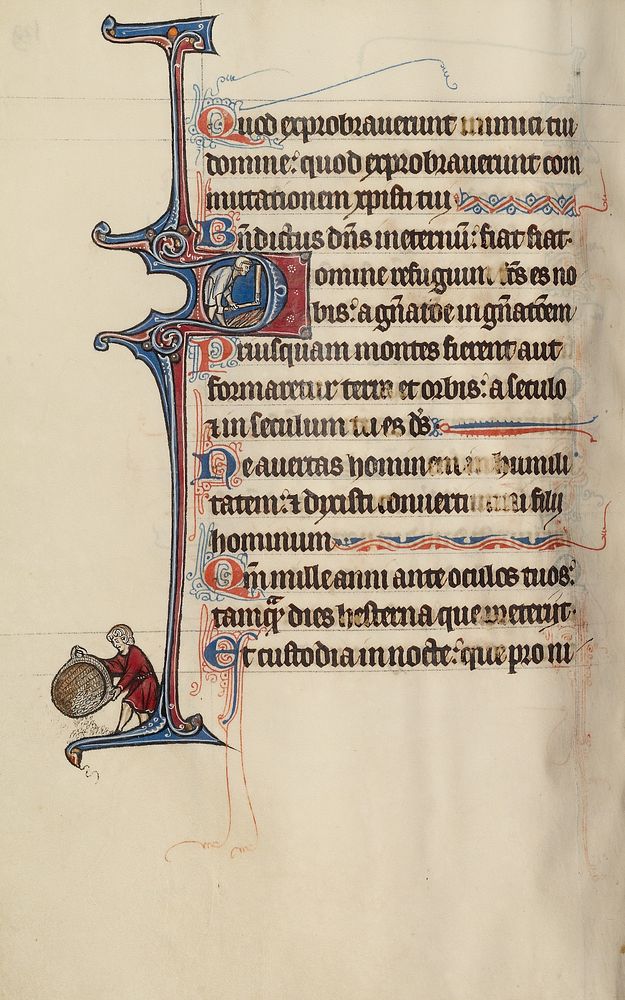 Quod exprobrauerunt inimici tui
domine: quod exprobrauerunt com
mutationem xpisti tui
Bñdictus dñs ineternũ: fiat fiat.
Domine refugium fcĩs es no
bis: a gñatõe in gñatõem
Priusquam montes fierent aut
formaretur terra et orbis: a seculo
⁊ in seculum tu es dš
Ne auertas hominem in humili
tatem: ⁊ dixisti conuertimini filij
hominum
Qm̃ mille anni ante oculos tuos:
tamqᷓ dies hesterna que preterijt.
Et custodia in nocte: que pro ni